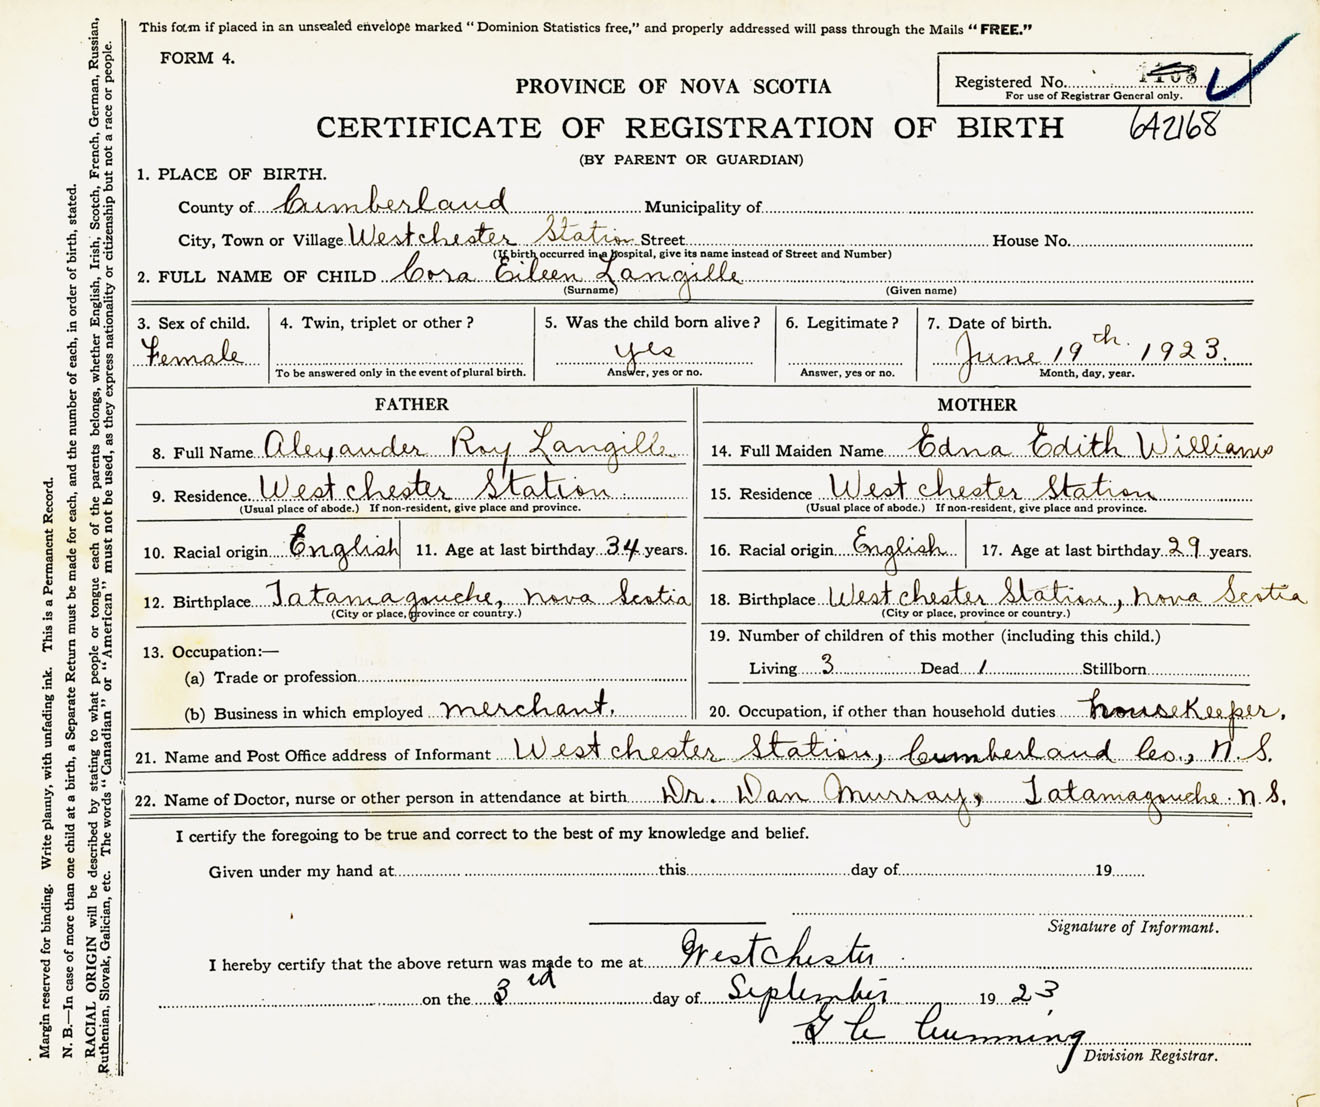 This form if placed in an unsealed envelope marked "Dominion Statistics free," and properly addressed will pass through the Mails "FREE."
FORM 4.
Registered No.
For use of Registrar General only.
PROVINCE OF NOVA SCOTIA
CERTIFICATE OF REGISTRATION OF BIRTH 642168
(BY PARENT OR GUARDIAN)
1. PLACE OF BIRTH.
County of Cumberland Municipality of
City, Town or Village Westchester Station Street House No.
(If birth occurred in a hospital, give its name instead of Street and Number)
2. FULL NAME OF CHILD Cora Eileen Langille
(Surname) (Given name)
3. Sex of child. 4. Twin, triplet or other? 5. Was the child born alive? 6. Legitimate? 7. Date of birth.
Female yes June 19th. 1923.
To be answered only in the event of plural birth. Answer, yes or no. Answer, yes or no. Month, day, year.
FATHER MOTHER
8. Full Name Alexander Roy Langille 14. Full Maiden Name Edna Edith Williams
9. Residence West chester Station 15. Residence West chester Station
(Usual place of abode.) If non-resident, give place and province. (Usual place of abode.) If non-resident, give place and province.
10. Racial origin English 11. Age at last birthday 34 years. 16. Racial origin English 17. Age at last birthday 29 years.
12. Birthplace Tatamagouche, Nova Scotia 18. Birthplace West chester Station, Nova Scotia
(City or place, province or country.) (City or place, province or country.)
19. Number of children of this mother (including this child.)
13. Occupation:—
Living 3 Dead 1 Stillborn
(a) Trade or profession
(b) Business in which employed merchant. 20. Occupation, if other than household duties housekeeper.
21. Name and Post Office address of Informant West chester Station, Cumberland Co., N.S.
22. Name of Doctor, nurse or other person in attendance at birth Dr. Dan Murray, Tatamagouche N.S.
I certify the foregoing to be true and correct to the best of my knowledge and belief.
Given under my hand at this day of 19
Signature of Informant.
I hereby certify that the above return was made to me at Westchester
on the 3rd day of September 1923
G C Cumming
Division Registrar.
Margin reserved for binding. Write plainly, with unfading ink. This is a Permanent Record.
N. B.—In case of more than one child at a birth, a Separate Return must be made for each, and the number of each, in order of birth, stated.
RACIAL ORIGIN will be described by stating to what people or tongue each of the parents belongs, whether English, Irish, Scotch, French, German, Russian,
Ruthenian, Slovak, Galician, etc. The words "Canadian" or "American" must not be used, as they express nationality or citizenship but not a race or people.